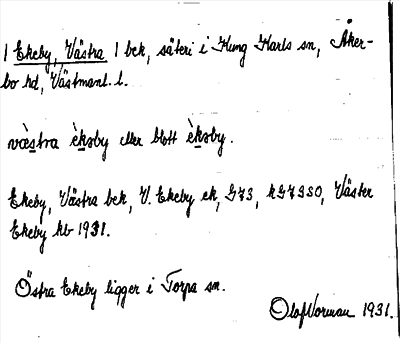 1 Ekeby, Västra 1 bek, säteri i Kung Karls sn, Åker-
bo hd, Västmanl. l.
væ̀stra è̀kəby eller blott è̀kəby.
Ekeby, Västra bek, V. Ekeby ek, G73, kG73SO, Väster
Ekeby kb 1931.
Östra Ekeby ligger i Torpa sn.
Olof Norman 1931.